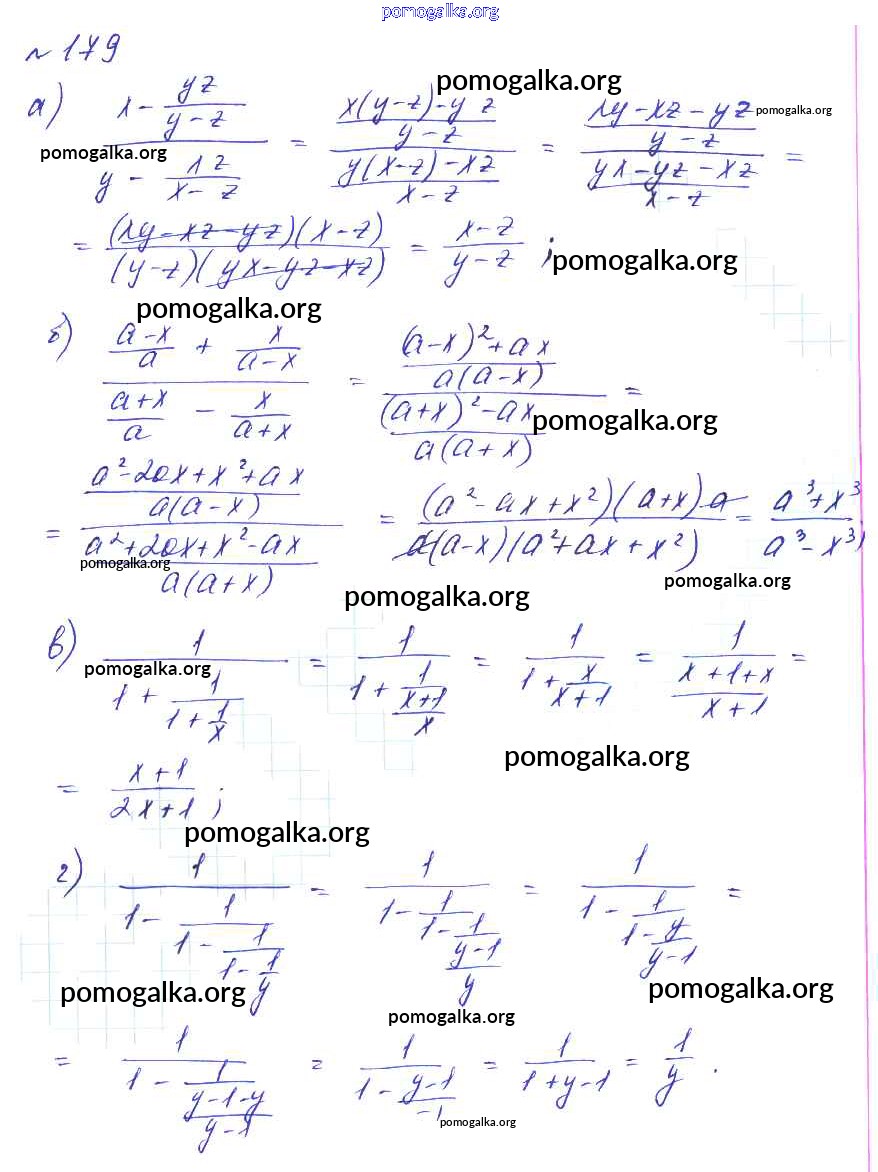 pomogalka.org
№ 179
а) (x - yz/(y-z)) / (y - xz/(x-z)) = ((x(y-z)-yz)/(y-z)) / ((y(x-z)-xz)/(x-z)) = ((xy-xz-yz)/(y-z)) / ((yx-yz-xz)/(x-z)) =
pomogalka.org pomogalka.org pomogalka.org
= ((xy-xz-yz)(x-z)) / ((y-z)(yx-yz-xz)) = (x-z)/(y-z) ;
pomogalka.org
pomogalka.org
б) ((a-x)/a + x/(a-x)) / ((a+x)/a - x/(a+x)) = (((a-x)²+ax)/(a(a-x))) / (((a+x)²-ax)/(a(a+x))) =
pomogalka.org
= ((a²-2ax+x²+ax)/(a(a-x))) / ((a²+2ax+x²-ax)/(a(a+x))) = ((a²-ax+x²)(a+x)a) / (a(a-x)(a²+ax+x²)) = (a³+x³)/(a³-x³) ;
pomogalka.org pomogalka.org
pomogalka.org
в) 1/(1 + 1/(1 + 1/x)) = 1/(1 + 1/((x+1)/x)) = 1/(1 + x/(x+1)) = 1/((x+1+x)/(x+1)) =
pomogalka.org
pomogalka.org
= (x+1)/(2x+1) ;
pomogalka.org
г) 1/(1 - 1/(1 - 1/(1 - 1/y))) = 1/(1 - 1/(1 - 1/((y-1)/y))) = 1/(1 - 1/(1 - y/(y-1))) =
pomogalka.org pomogalka.org
pomogalka.org
= 1/(1 - 1/((y-1-y)/(y-1))) = 1/(1 - (y-1)/(-1)) = 1/(1+y-1) = 1/y .
pomogalka.org